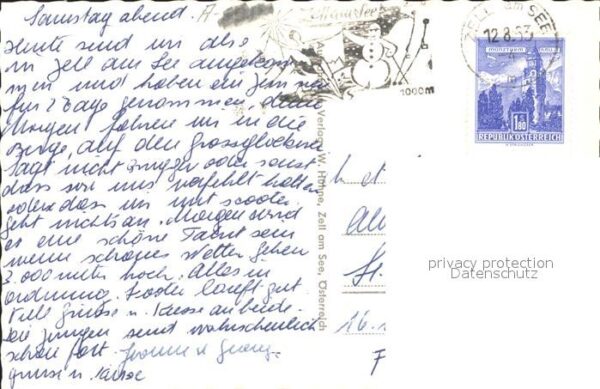 Samstag abend.
Heute sind wir also
in Zell am See angekom
men und haben ein Zimmer
für 2 Tage genommen, denn
Morgen fahren wir in die
Berge, auf den Grossglockner
sagt nicht Jungen oder sonst
dass wir uns verfehlt hatten
oder dass uns mit scooter
geht nichts an. Morgen wird
es eine schöne Fahrt sein
wenn schönes Wetter gehen
3.000 meter hoch. Alles in
ordnung. Scooter läuft gut.
Viele Grüsse u. Küsse an beide.
die Jungen sind wahrscheinlich
schon fort. Georg
Grüsse u. Küsse
1000m
Verlag W. Höhne, Zell am See, Österreich
ZELL am SEE
12.8.63
MÜNZTURM HALL
1.80
REPUBLIK ÖSTERREICH
privacy protection
Datenschutz